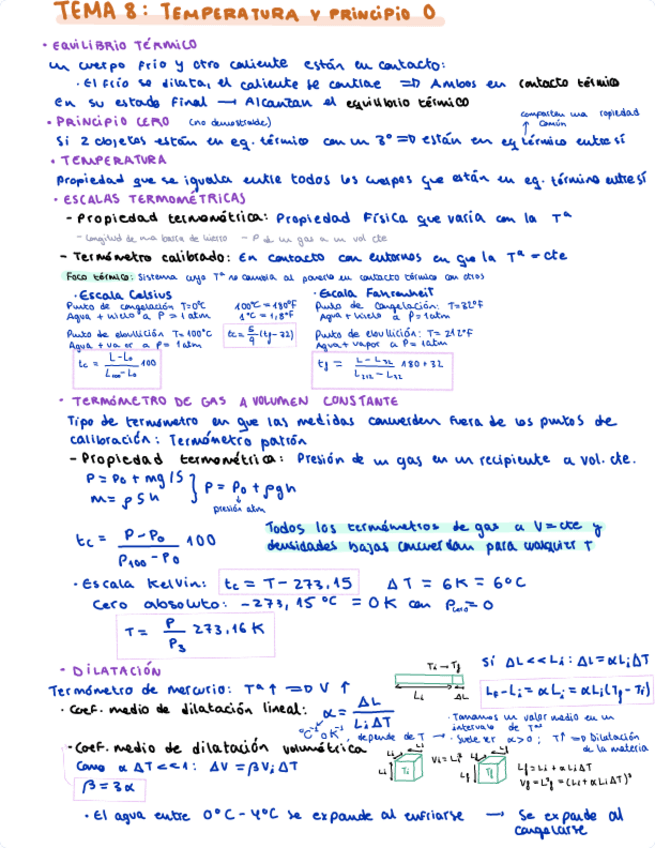 TEMA 8: TEMPERATURA Y PRINCIPIO 0
· EQUILIBRIO TÉRMICO
un cuerpo frío y otro caliente están en contacto:
· El frío se dilata, el caliente se contrae => Ambos en contacto térmico
en su estado final → Alcanzan el equilibrio térmico
· PRINCIPIO CERO (no demostrable)
comparten una propiedad común
Si 2 objetos están en eq. térmico con un 3º => están en eq térmico entre sí
· TEMPERATURA
Propiedad que se iguala entre todos los cuerpos que están en eq. térmico entre sí
· ESCALAS TERMOMÉTRICAS
- Propiedad termométrica: Propiedad Física que varía con la Tª
- Longitud de una barra de hierro - P de un gas a un vol cte
- Termómetro calibrado: En contacto con entornos en que la Tª = cte
Foco térmico: Sistema cuya Tª no cambia al ponerlo en contacto térmico con otros
· Escala Celsius
Punto de congelación T=0ºC
Agua + hielo a P=1atm
Punto de ebullición T=100ºC
Agua + va or a P= 1atm
tc = (L-L0)/(L100-L0) 100
100ºC = 180ºF
1ºC = 1,8ºF
tc = 5/9 (tf-32)
· Escala Fahrenheit
Punto de Congelación: T=32ºF
Agua + hielo a P=1atm
Punto de ebullición: T= 212ºF
Agua + vapor a P= 1atm
tf = (L-L32)/(L212-L32) 180+32
· TERMÓMETRO DE GAS A VOLUMEN CONSTANTE
Tipo de termómetro en que las medidas concuerdan fuera de los puntos de
calibración: Termómetro patrón
- Propiedad termométrica: Presión de un gas en un recipiente a vol. cte.
P = P0 + mg/S
m = ρSh
} P = P0 + ρgh
presión atm
tc = (P-P0)/(P100-P0) 100
Todos los termómetros de gas a V=cte y
densidades bajas concuerdan para cualquier T
· Escala Kelvin: tc = T - 273,15 ΔT = 6K = 6ºC
Cero absoluto: -273,15 ºC = 0K con Pcero = 0
T = P/P3 273,16 K
· DILATACIÓN
Termómetro de mercurio: Tª ↑ => V ↑
· Coef. medio de dilatación lineal: α = ΔL/(LiΔT)
ºC⁻¹ o K⁻¹, depende de T
Ti → Tf
Li ΔL
Si ΔL<<Li: ΔL = αLiΔT
Lf-Li = αLi = αLi(Tf-Ti)
· Tomamos un valor medio en un
intervalo de Tªs
· Suele ser α>0; T↑ => Dilatación
de la materia
- Coef. medio de dilatación volumétrica
Como αΔT<<1: ΔV = βViΔT
β = 3α
Li Li Li Ti Vi = Li³
Lf Lf Lf Tf
Lf = Li + αLiΔT
Vf = Lf³ = (Li + αLiΔT)³
· El agua entre 0ºC - 4ºC se expande al enfriarse → Se expande al
congelarse